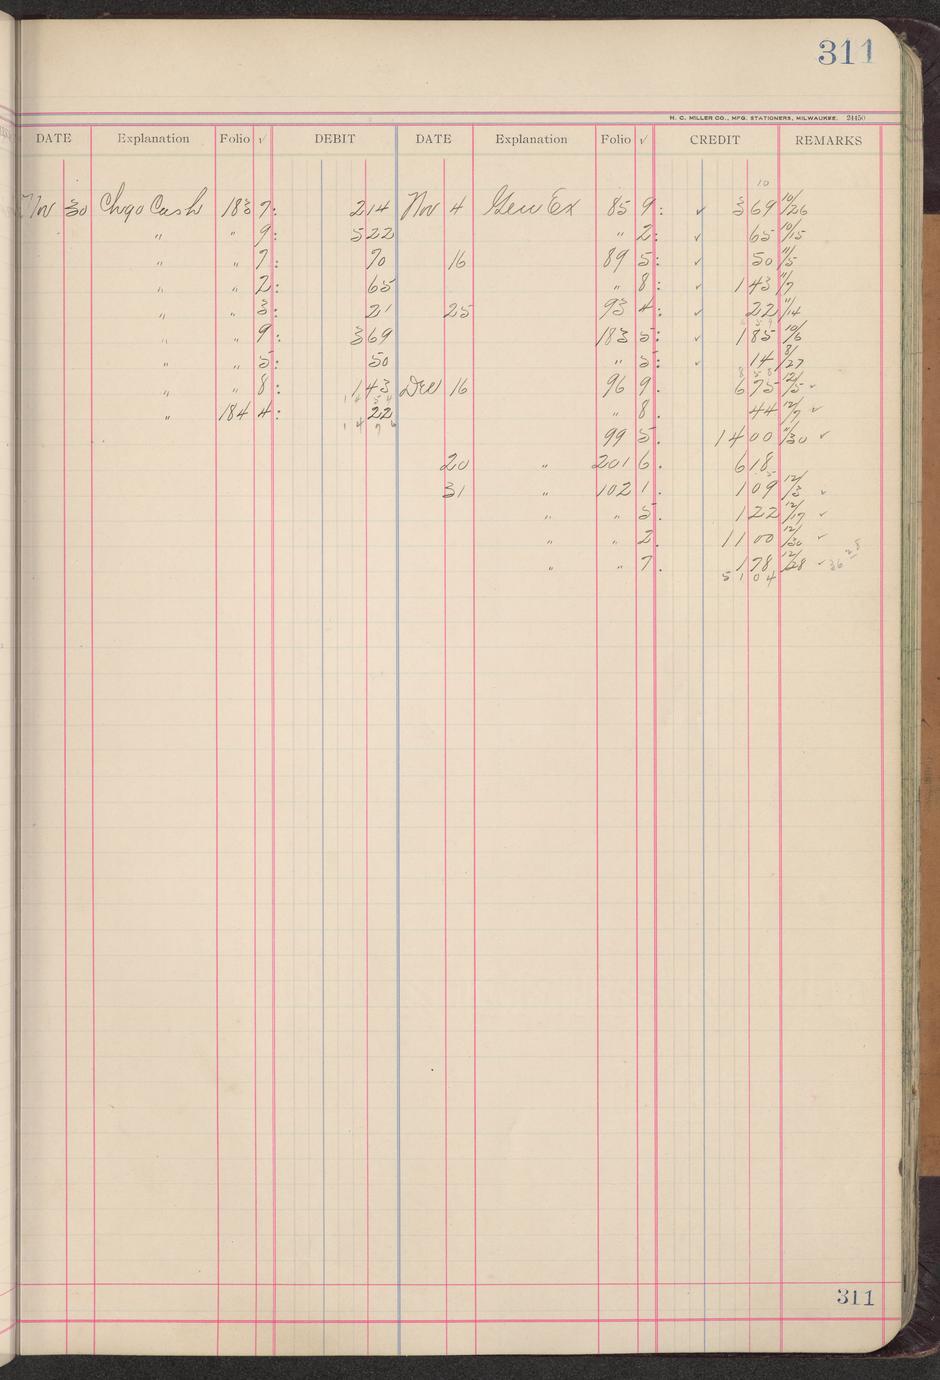 311
H. C. MILLER CO., MFG. STATIONERS, MILWAUKEE. 24450
DATE Explanation Folio √ DEBIT DATE Explanation Folio √ CREDIT REMARKS
10
Nov 30 Chgo Cash 183 7: 214 Nov 4 Gen Ex 85 9: ✓ 369 10/26
" " 9: 522 " 2: ✓ 65 10/15
" " 7: 70 16 89 5: ✓ 50 11/5
" " 2: 65 " 8: ✓ 143 11/7
" " 3: 21 25 93 4: ✓ 22 11/14
" " 9: 369 183 5: ✓ 185 10/6
" " 5: 50 " 5: ✓ 14 8/27
858
" " 8: 143 Dec 16 96 9. 675 12/5 ✓
1454
" 184 4: 22 " 8. 44 12/7 ✓
1476
99 5. 1400 11/30 ✓
20 " 201 6. 618
31 " 102 1. 109 12/3 ✓
" " 5. 122 12/17 ✓
" " 2. 1100 12/30 ✓
" " 7. 178 12/28 ✓
5104
311